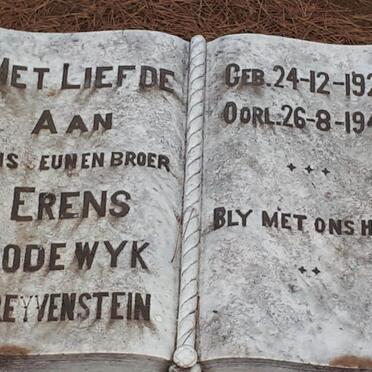 MET LIEFDE
AAN
EUN EN BROER
ERENS
ODEWYK
REYVENSTEIN
GEB. 24-12-192
OORL. 26-8-194
BLY MET ONS H